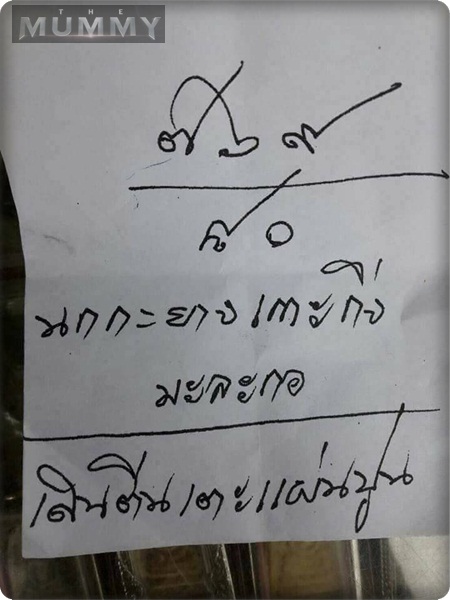 THE
MUMMY
๗ ๖ ๙
๘ ๐
นกกะยางเกาะกิ่ง
มะละกอ
เดินตีนเตะแผ่นปูน